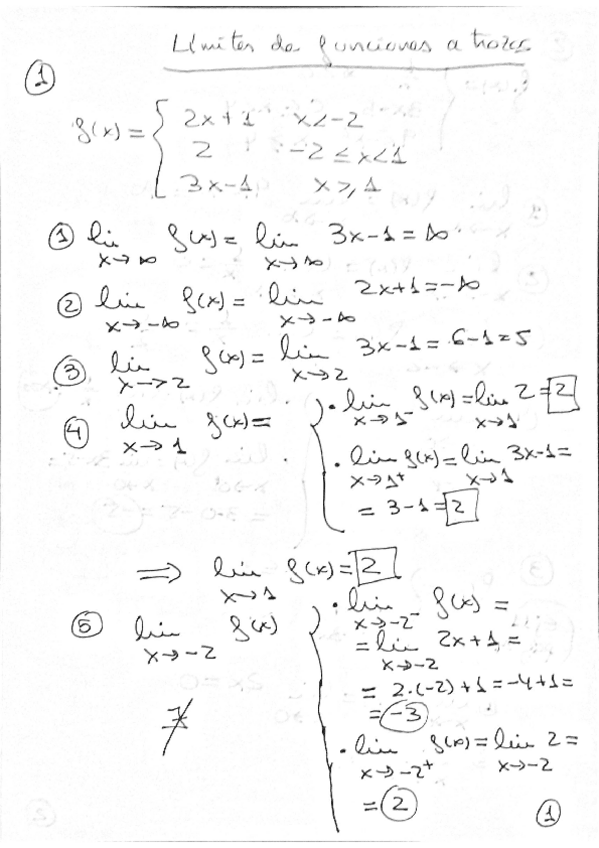 Límites de funciones a trozos
①
f(x) = { 2x+1 x<-2
2 -2≤x<1
3x-1 x≥1
① lim x→∞ f(x) = lim x→∞ 3x-1 = ∞
② lim x→-∞ f(x) = lim x→-∞ 2x+1 = -∞
③ lim x→2 f(x) = lim x→2 3x-1 = 6-1 = 5
④ lim x→1 f(x) =
· lim x→1⁻ f(x) = lim x→1 2 = 2
· lim x→1⁺ f(x) = lim x→1 3x-1 =
= 3-1 = 2
⟹ lim x→1 f(x) = 2
⑤ lim x→-2 f(x)
∄
· lim x→-2⁻ f(x) =
= lim x→-2 2x+1 =
= 2·(-2)+1 = -4+1 =
= -3
· lim x→-2⁺ f(x) = lim x→-2 2 =
= 2
①